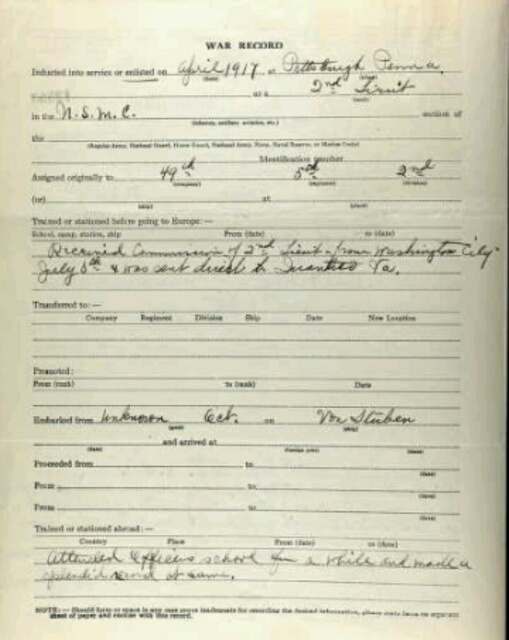 WAR RECORD
Inducted into service or enlisted on April 1917 at Pittsburgh Penna.
(date) (place)
as a 2nd Lieut
(rank)
in the U.S.M.C. section of
(infantry, artillery, aviation, etc.)
the
(Regular Army, National Guard, Home Guard, National Army, Navy, Naval Reserve, or Marine Corps)
Identification number
Assigned originally to 49th 5th 2nd
(company) (regiment) (division)
(or) at
(ship) (place)
Trained or stationed before going to Europe:—
School, camp, station, ship From (date) to (date)
Received Commission of 2nd Lieut from Washington City
July 5th & was sent direct to Quantico Va.
Transferred to:—
Company Regiment Division Ship Date New Location
Promoted:
From (rank) to (rank) Date
Embarked from Unknown Oct. on Von Stuben
(port) (ship)
and arrived at
(date) (foreign port) (date)
Proceeded from to
(date)
From to
(date)
From to
(date)
Trained or stationed abroad:—
Country Place From (date) to (date)
Attended Officers school for a while and made a
splendid record at same.
NOTE:— Should form or space in any case prove inadequate for recording the desired information, please make use of separate
sheet of paper and enclose with this record.